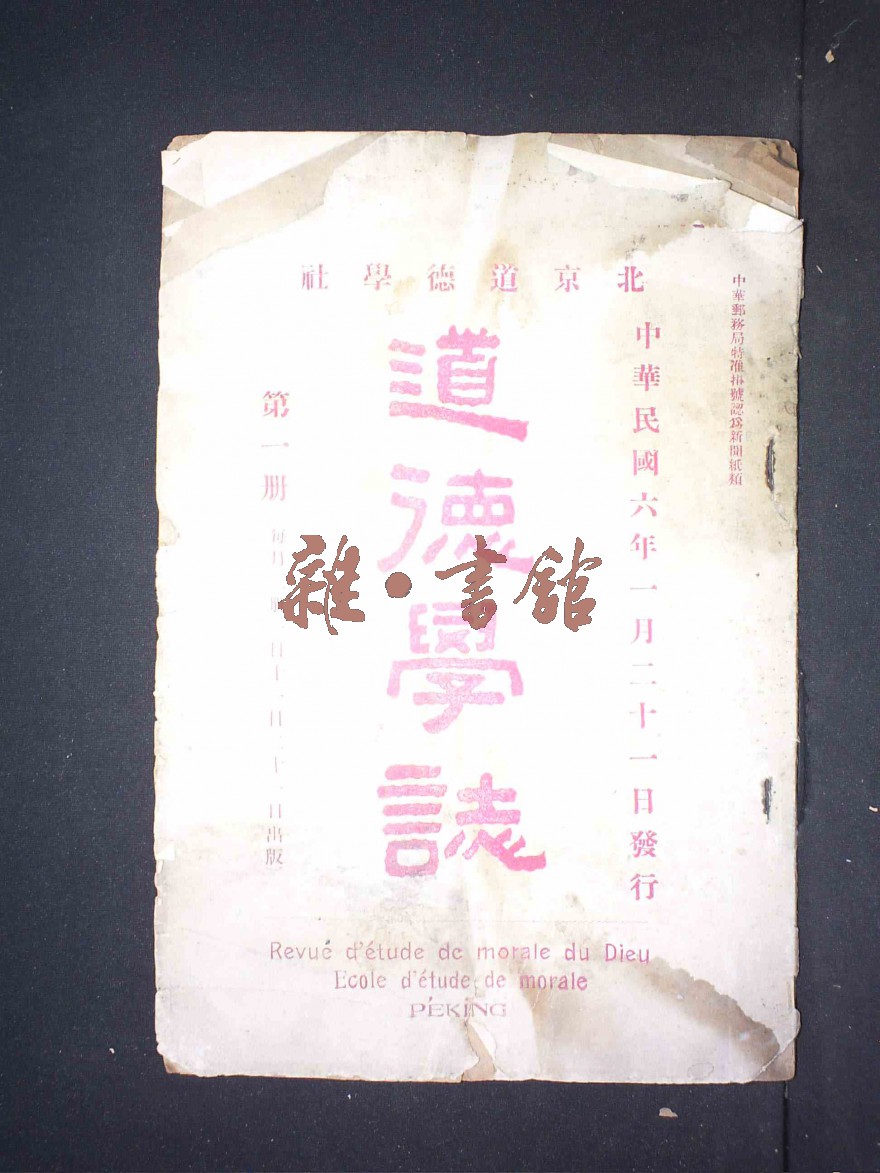 中華郵務局特准掛號認爲新聞紙類
北京道德學社
中華民國六年一月二十一日發行
道德學誌
第一册
每月 日十一日二十一日出版
雜·書館
Revué d'étude de morale du Dieu
Ecole d'étude de morale
PÉKING